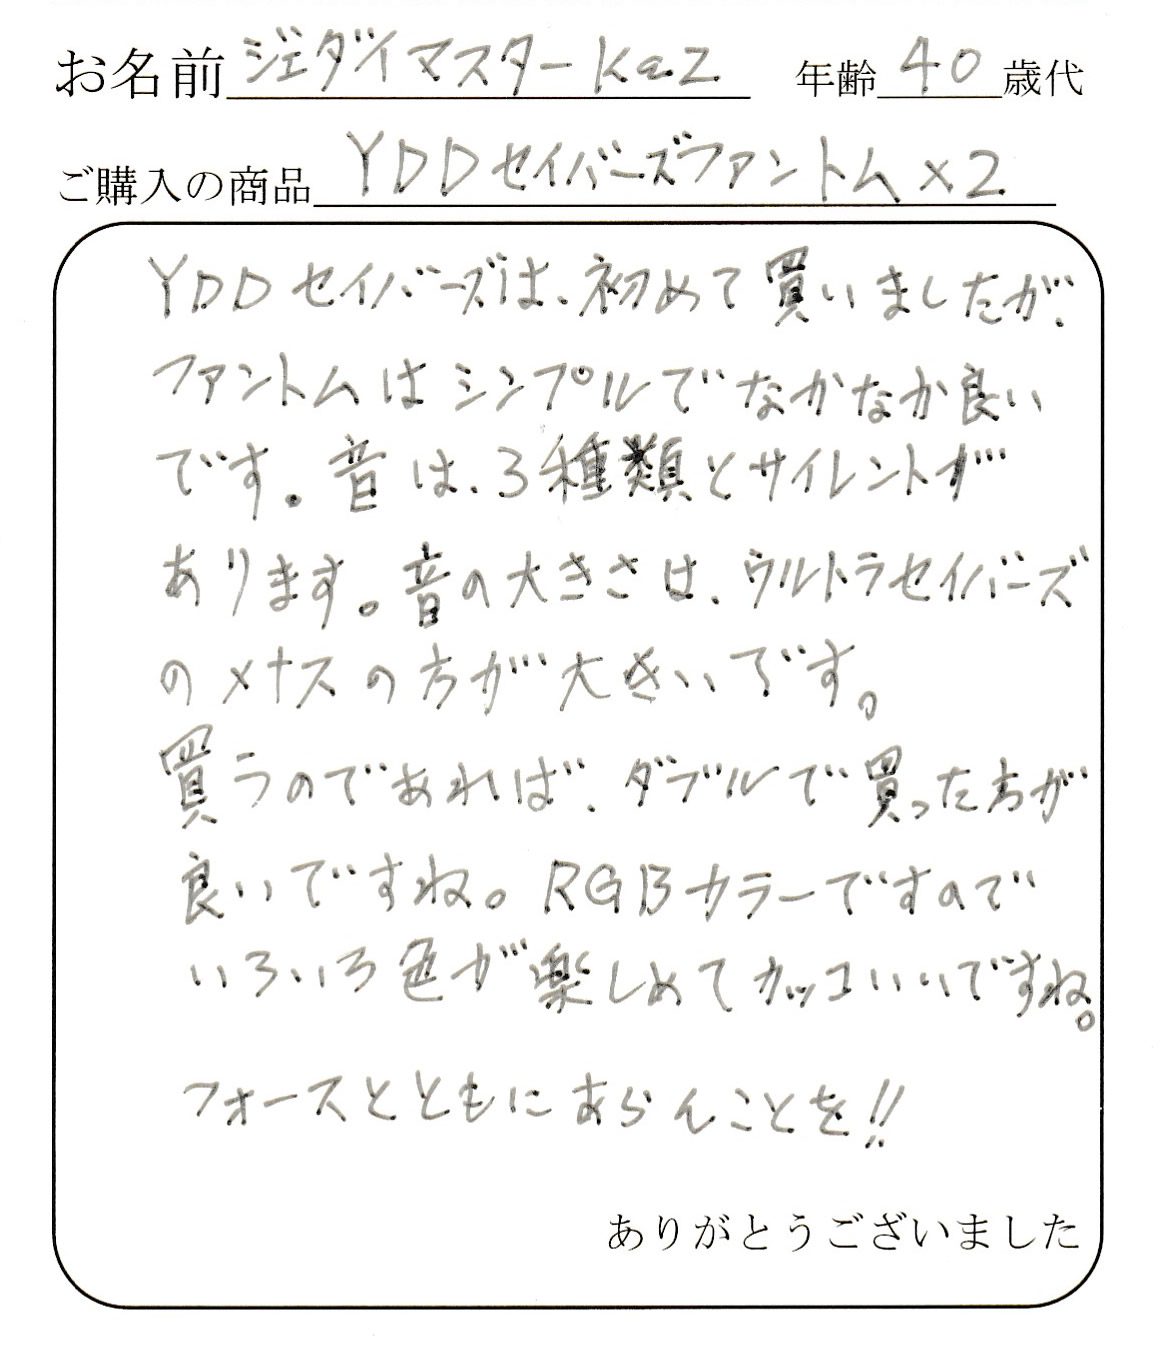 お名前 ジェダイマスターKaz 年齢 40 歳代
ご購入の商品 YDDセイバーズファントム×2
YDDセイバーズは、初めて買いましたが、
ファントムはシンプルでなかなか良い
です。音は、3種類とサイレントが
あります。音の大きさは、ウルトラセイバーズ
のメナスの方が大きいです。
買うのであれば、ダブルで買った方が
良いですね。RGBカラーですので
いろいろ色が楽しめてカッコいいですね。
フォースとともにあらんことを!!
ありがとうございました